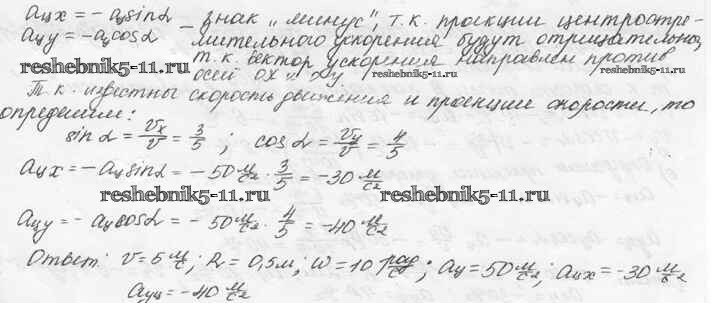 aцx = - aцsinα
aцy = - aцcosα
– знак „минус", т.к. проекции центростре-
мительного ускорения будут отрицательны,
т.к. вектор ускорения направлен против
осей ox и oy
reshebnik5-11.ru reshebnik5-11.ru reshebnik5-11.ru
Т.к. известны скорость движения и проекции скорости, то
определим:
sinα = Vx/V = 3/5 ; cosα = Vy/V = 4/5
aцx = - aцsinα = - 50 м/с² · 3/5 = -30 м/с²
reshebnik5-11.ru reshebnik5-11.ru
aцy = - aцcosα = - 50 м/с² · 4/5 = -40 м/с²
Ответ: V = 5 м/с; R = 0,5м; ω = 10 рад/с; aц = 50 м/с²; aцx = -30 м/с²
aцy = -40 м/с²